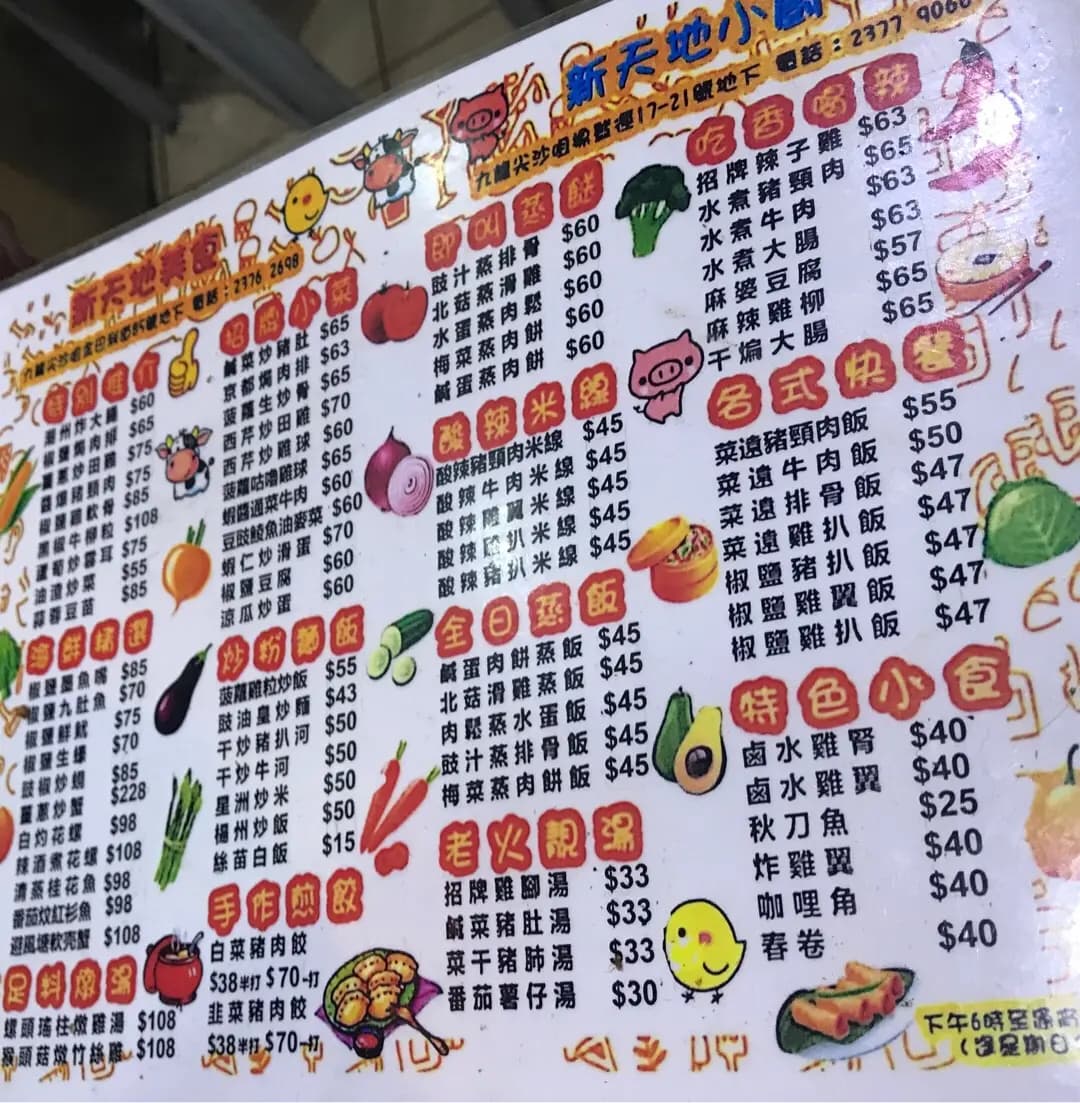 新天地小廚
九龍尖沙咀 17-21號地下 電話：2377 9066
新天地美食
電話：2376 2698
特別推介
潮州炸大腸 $60
椒鹽焗肉排 $65
薑蔥炒田雞 $75
醬爆豬頸肉 $75
椒鹽雞軟骨 $85
黑椒牛柳粒 $108
蘆筍炒雲耳 $75
油渣炒菜 $55
蒜蓉豆苗 $85
海鮮精選
椒鹽墨魚嘴 $85
椒鹽九肚魚 $70
椒鹽鮮魷 $75
椒鹽生蠔 $70
豉椒炒蜆 $85
薑蔥炒蟹 $228
白灼花螺 $98
辣酒煮花螺 $108
清蒸桂花魚 $98
番茄炆紅衫魚 $98
避風塘軟壳蟹 $108
足料燉湯
螺頭瑤柱燉雞湯 $108
猴頭菇燉竹絲雞 $108
招牌小菜
鹹菜炒豬肚 $65
京都焗肉排 $63
菠蘿生炒骨 $65
西芹炒田雞 $70
西芹炒雞球 $60
菠蘿咕嚕雞球 $65
蝦醬通菜牛肉 $60
豆豉鯪魚油麥菜 $60
蝦仁炒滑蛋 $70
椒鹽豆腐 $60
涼瓜炒蛋 $60
炒粉麵飯
菠蘿雞粒炒飯 $55
豉油皇炒麵 $43
干炒豬扒河 $50
干炒牛河 $50
星洲炒米 $50
楊州炒飯 $50
絲苗白飯 $15
手作煎餃
白菜豬肉餃
$38半打 $70一打
韭菜豬肉餃
$38半打 $70一打
即叫蒸餸
豉汁蒸排骨 $60
北菇蒸滑雞 $60
水蛋蒸肉鬆 $60
梅菜蒸肉餅 $60
鹹蛋蒸肉餅 $60
酸辣米線
酸辣豬頸肉米線 $45
酸辣牛肉米線 $45
酸辣雞翼米線 $45
酸辣雞扒米線 $45
酸辣豬扒米線 $45
全日蒸飯
鹹蛋肉餅蒸飯 $45
北菇滑雞蒸飯 $45
肉鬆蒸水蛋飯 $45
豉汁蒸排骨飯 $45
梅菜蒸肉餅飯 $45
老火靚湯
招牌雞腳湯 $33
鹹菜豬肚湯 $33
菜干豬肺湯 $33
番茄薯仔湯 $30
吃香喝辣
招牌辣子雞 $63
水煮豬頸肉 $65
水煮牛肉 $63
水煮大腸 $63
麻婆豆腐 $57
麻辣雞柳 $65
干煸大腸 $65
各式快餐
菜遠豬頸肉飯 $55
菜遠牛肉飯 $50
菜遠排骨飯 $47
菜遠雞扒飯 $47
椒鹽豬扒飯 $47
椒鹽雞翼飯 $47
椒鹽雞扒飯 $47
特色小食
鹵水雞腎 $40
鹵水雞翼 $40
秋刀魚 $25
炸雞翼 $40
咖哩角 $40
春卷 $40
下午6時至深宵
（逢星期日